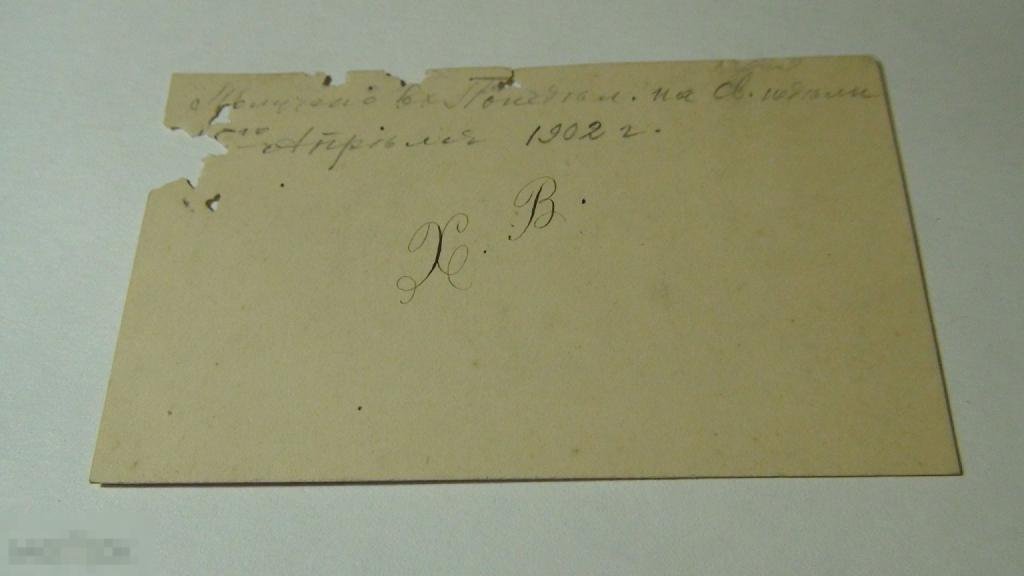 Получено въ Понедѣл. на Св. недѣли
Апрѣля 1902 г.
Х. В.